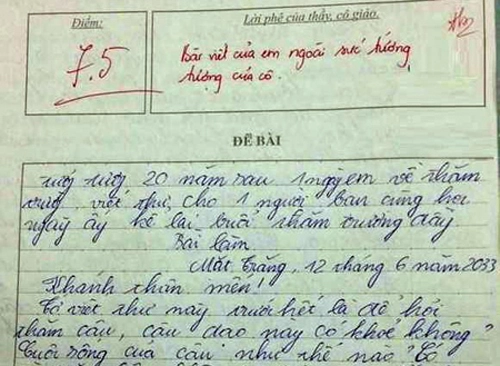 Điểm:
7.5
Lời phê của thầy, cô giáo.
Bài viết của em ngoài sức tưởng
tượng của cô.
ĐỀ BÀI
20 năm sau 1 ngày em về thăm
viết thư cho 1 người bạn cùng học
ngày ấy kể lại buổi thăm trường đầy
Bài làm
Mặt Trăng, 12 tháng 6 năm 2033
Khanh thân mến!
viết thư này trước hết là để hỏi
thăm cậu, cậu dạo này có khoẻ không
cuộc sống của cậu như thế nào